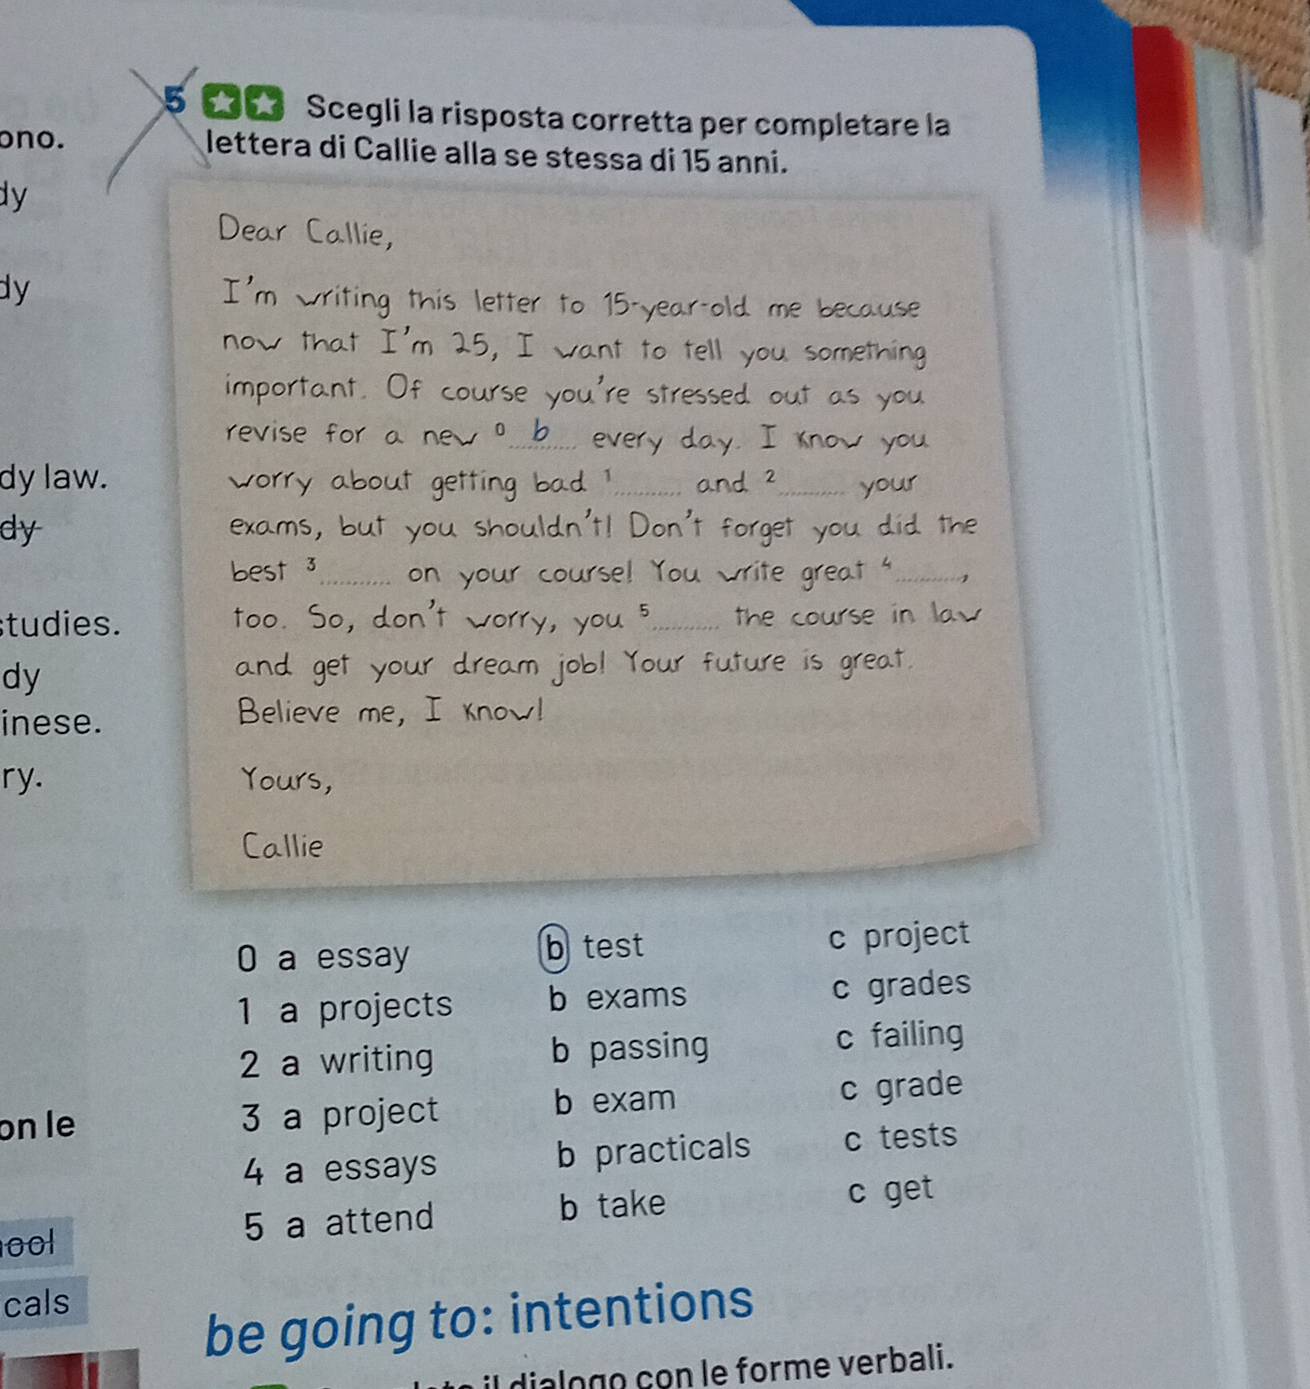 ono.
dy
dy
dy law.
dy
studies.
dy
inese.
ry.
on le
ool
cals
5 Scegli la risposta corretta per completare la
lettera di Callie alla se stessa di 15 anni.
Dear Callie,
I'm writing this letter to 15-year-old me because
now that I'm 25, I want to tell you something
important. Of course you're stressed out as you
revise for a new 0 b every day. I know you
worry about getting bad 1.......... and 2.......... your
exams, but you shouldn't! Don't forget you did the
best 3.......... on your course! You write great 4..........,
too. So, don't worry, you 5.......... the course in law
and get your dream job! Your future is great.
Believe me, I know!
Yours,
Callie
0 a essay b test c project
1 a projects b exams c grades
2 a writing b passing c failing
3 a project b exam c grade
4 a essays b practicals c tests
5 a attend b take c get
be going to: intentions
il dialogo con le forme verbali.